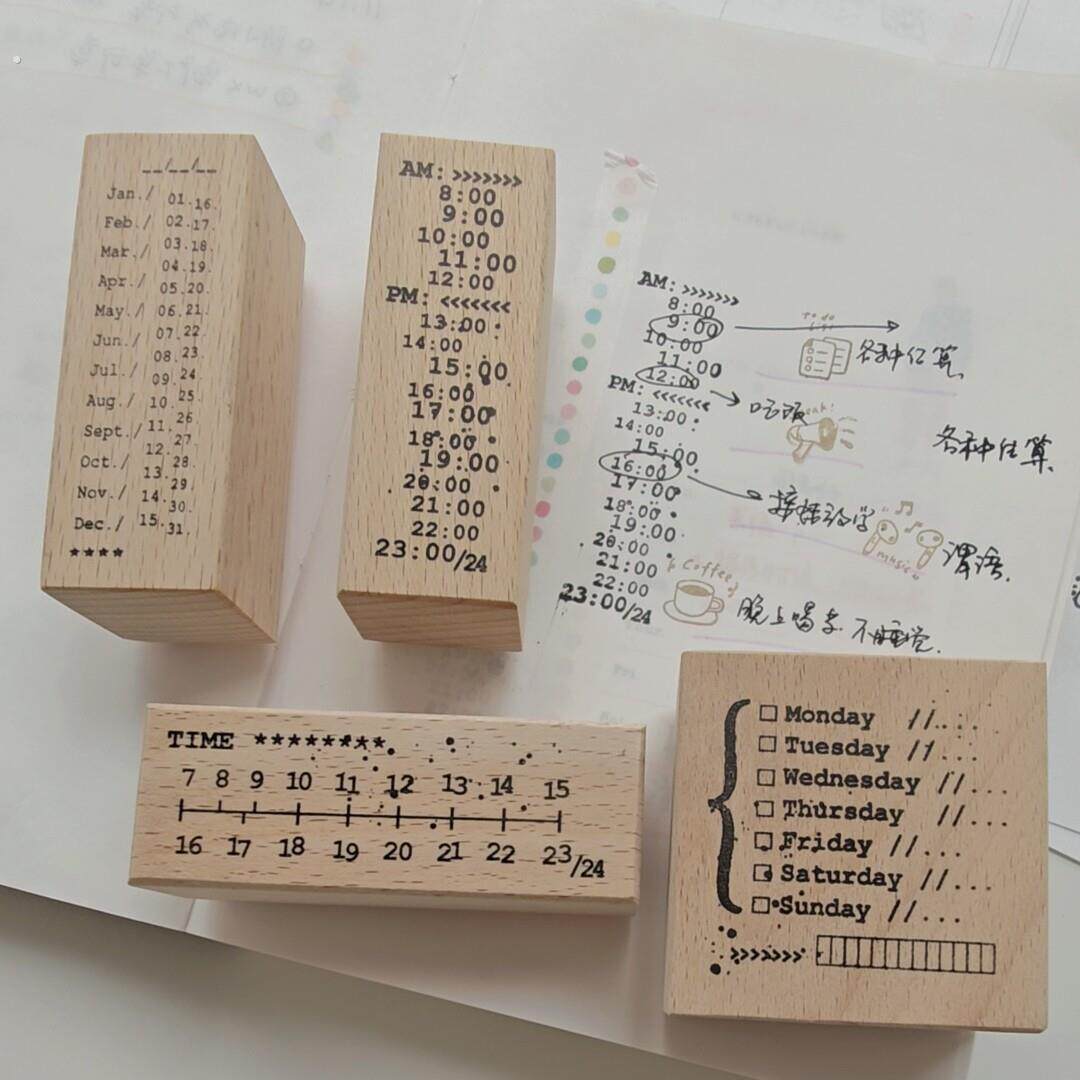 __/__/__
Jan./ 01.16.
Feb./ 02.17.
Mar./ 03.18.
Apr./ 04.19.
05.20.
May./ 06.21.
Jun./ 07.22.
08.23.
Jul./ 09.24.
25.
Aug./ 10.
26.
Sept./ 11.
27.
12.
Oct./ 28.
13.
29.
Nov./ 14.
30.
Dec./ 15.31.
****
AM: >>>>>>>
8:00
9:00
10:00
11:00
12:00
PM: <<<<<<<
13:00
14:00
15:00
16:00
17:00
18:00
19:00
20:00
21:00
22:00
23:00/24
AM: >>>>>>>
8:00
9:00
10:00
各种估算
11:00
12:00
吃饭
PM: <<<<<<<
13:00
14:00
15:00
各种估算
16:00
17:00
18:00
19:00
20:00
music
21:00
Coffee
22:00
23:00/24
晚上喝茶 不睡觉.
TIME ********
7 8 9 10 11 12 13 14 15
16 17 18 19 20 21 22 23/24
Monday //...
Tuesday //...
Wednesday //...
Thursday //...
Friday //...
Saturday //...
Sunday //...
>>>>>>>